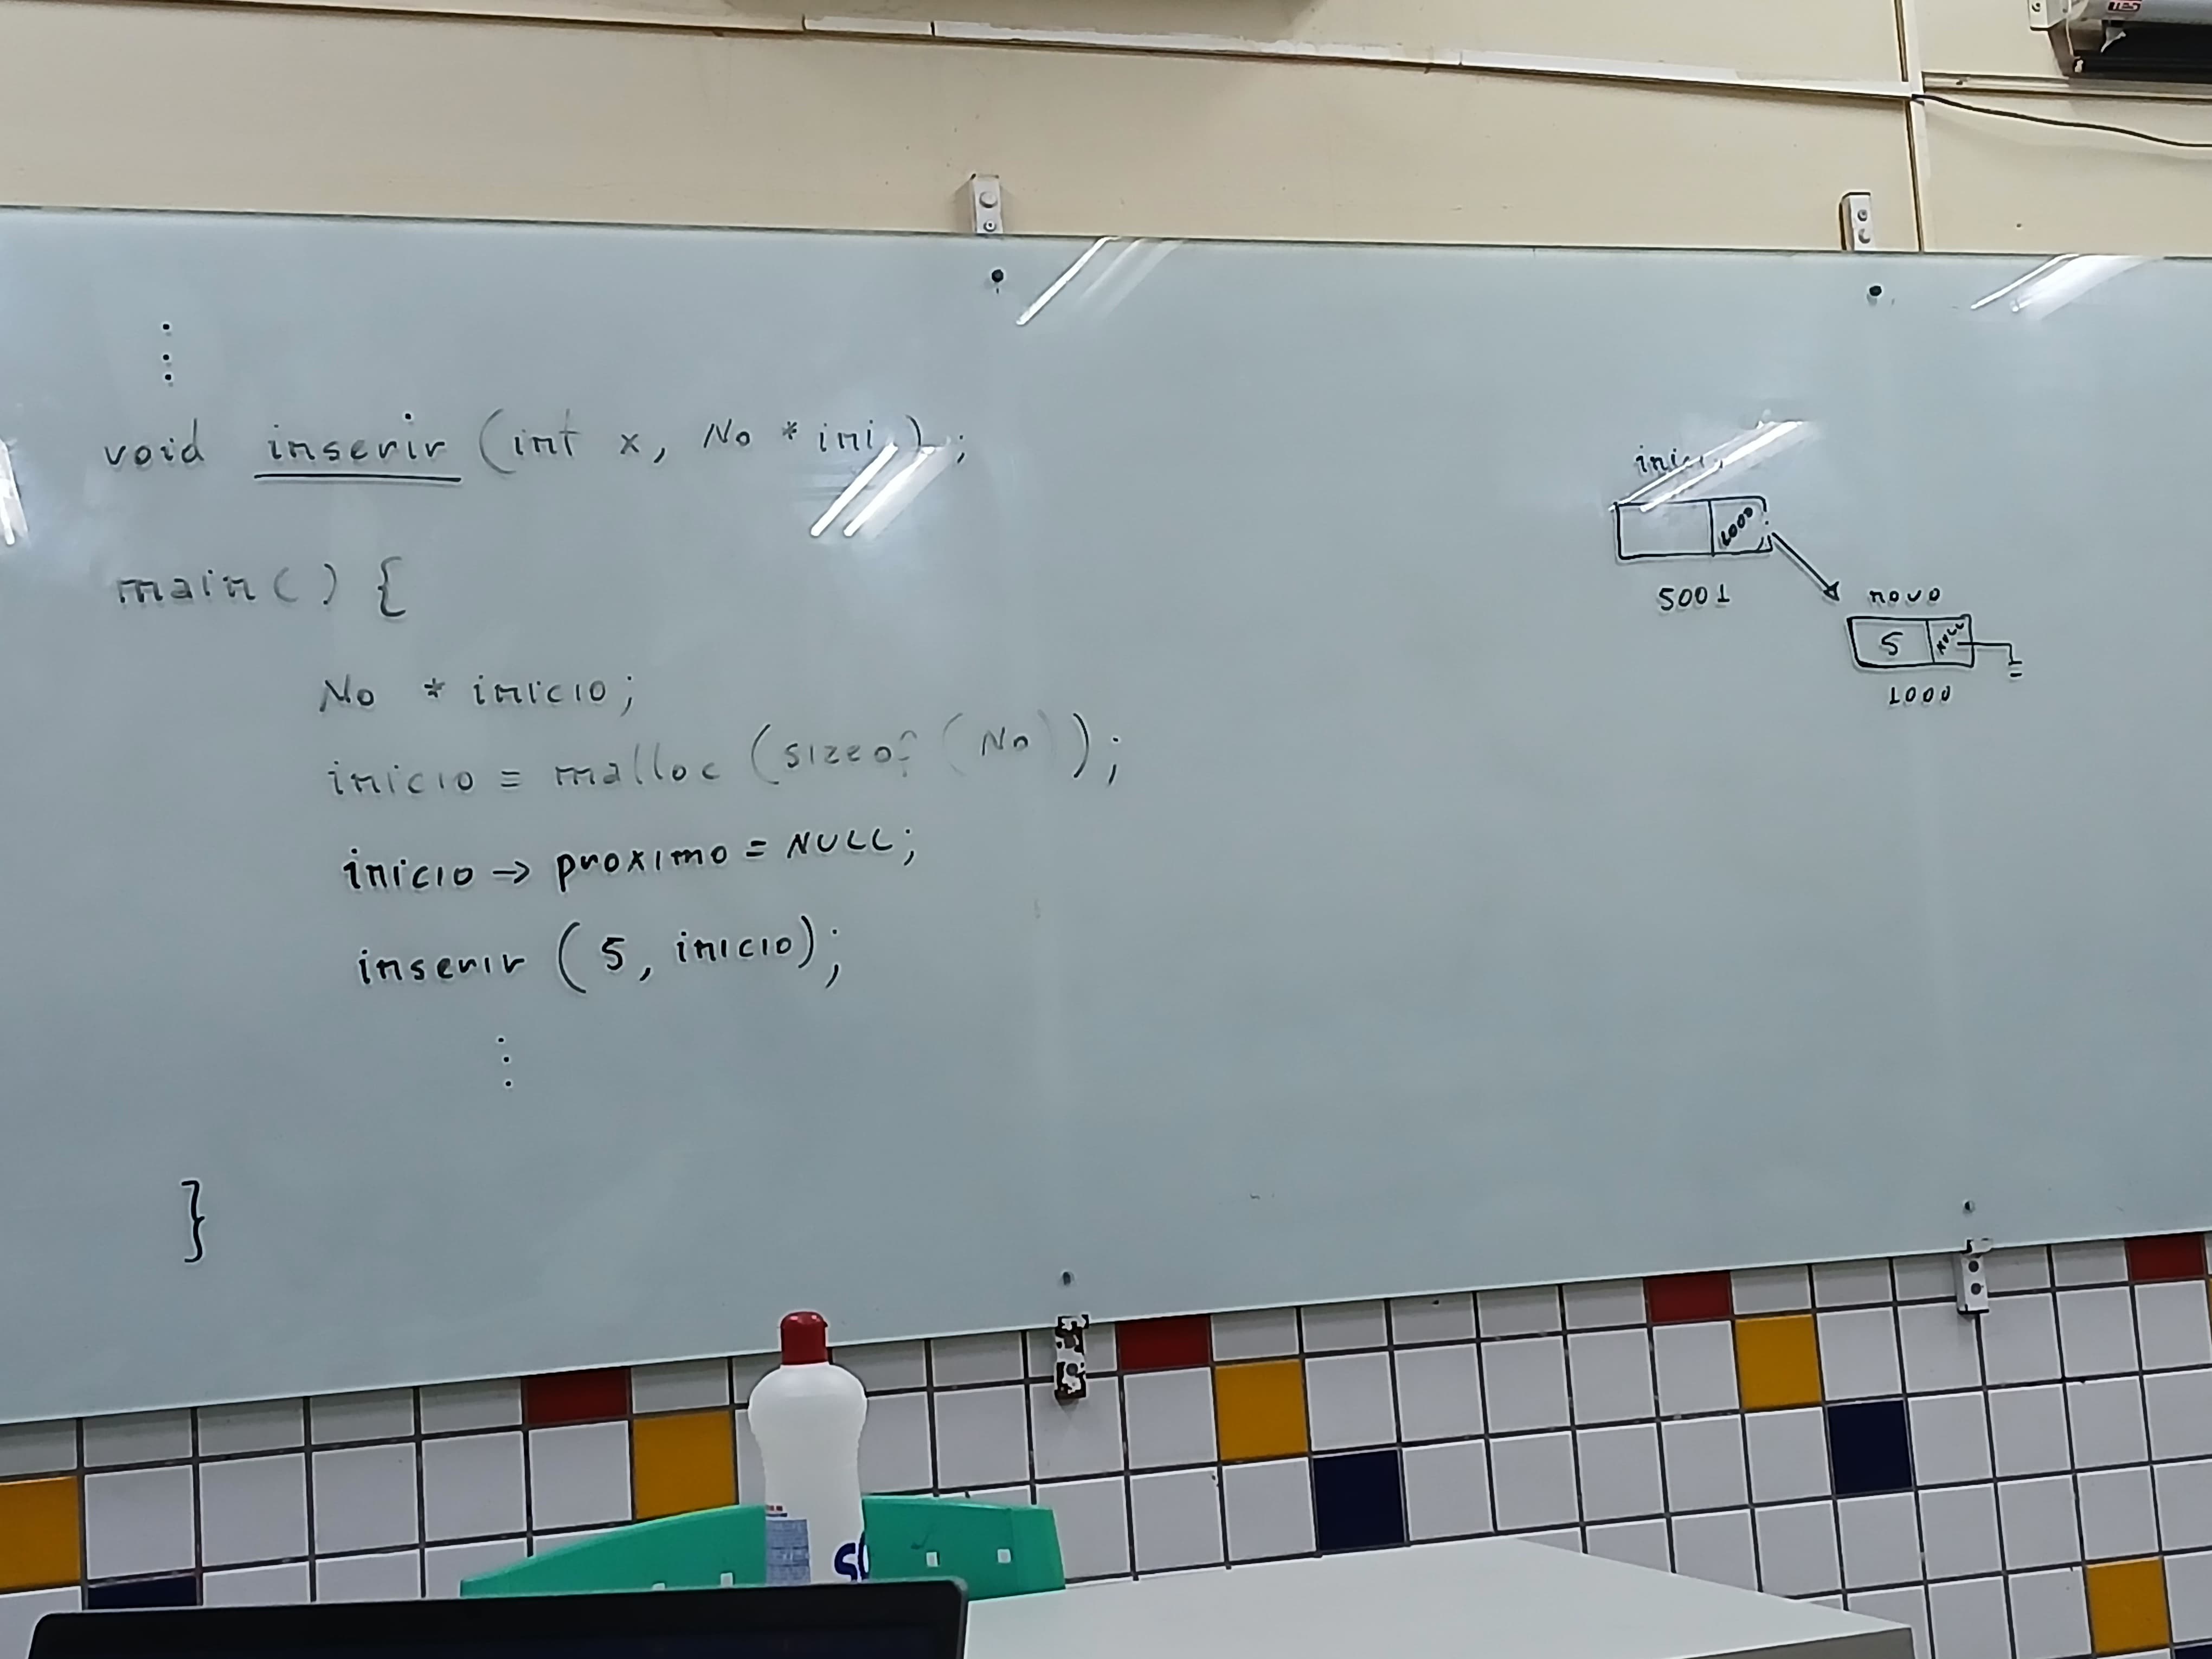 void inserir (int x, No * ini);
main() {
No * inicio;
inicio = malloc (sizeof (No));
inicio → proximo = NULL;
inserir ( 5, inicio);
}
1000
5001
novo
5 NULL
1000